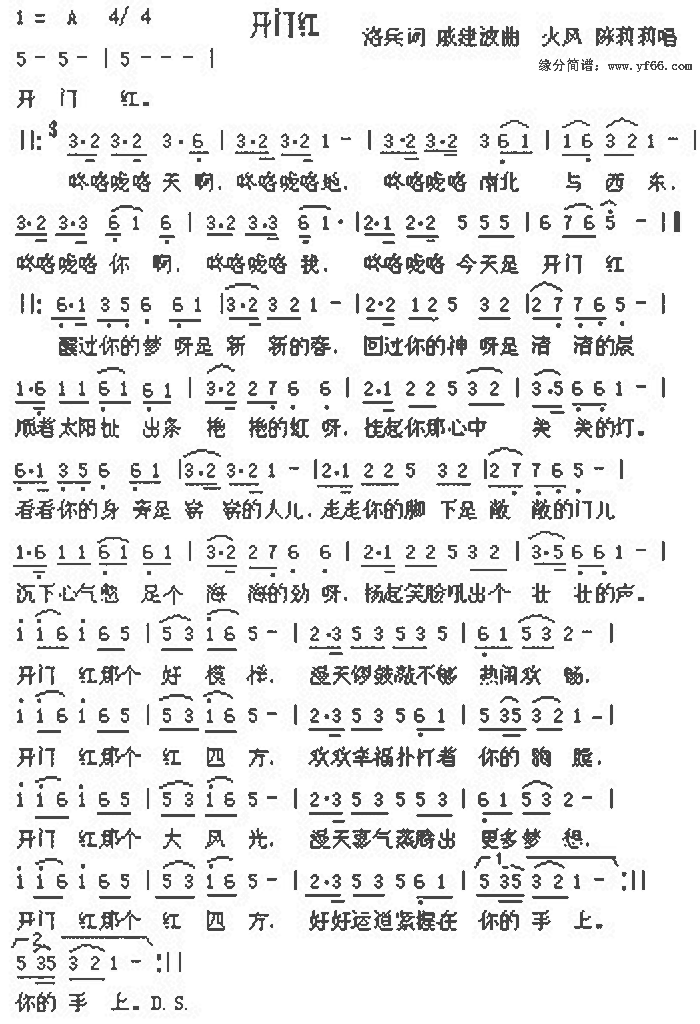 1 = A 4/4 开门红 洛兵词 戚建波曲 火风 陈莉莉唱
缘分简谱: www.yf66.com
5 - 5 - | 5 - - - |
开 门 红。
||: 3 3·2 3·2 3·6 | 3·2 3·2 1 - | 3·2 3·2 3 6 1 | 1 6 3 2 1 - |
咚咯咙咯 天 啊, 咚咯咙咯地, 咚咯咙咯 南北 与 西 东,
3·2 3·3 6 1 6 | 3·2 3·3 6 1· | 2·1 2·2 5 5 5 | 6 7 6 5 - |
咚咯咙咯 你 啊, 咚咯咙咯 我, 咚咯咙咯 今天是 开门 红
||: 6·1 3 5 6 6 1 | 3·2 3 2 1 - | 2·2 1 2 5 3 2 | 2 7 7 6 5 - |
醒过你的梦 呀是 新 新的春, 回过你的神 呀是 清 清的晨
1·6 1 1 6 1 6 1 | 3·2 2 7 6 6 | 2·1 2 2 5 3 2 | 3·5 6 6 1 - |
顺着太阳扯 出条 艳 艳的虹 呀, 挂起你那心中 美 美的灯。
6·1 3 5 6 6 1 | 3·2 3·2 1 - | 2·1 2 2 5 3 2 | 2 7 7 6 5 - |
看看你的身 旁是 崭 崭的人儿, 走走你的脚 下是 敞 敞的门儿
1·6 1 1 6 1 6 1 | 3·2 2 7 6 6 | 2·1 2 2 5 3 2 | 3·5 6 6 1 - |
沉下心气憋 足个 海 海的劲 呀, 扬起笑脸吼出个 壮 壮的声。
i i 6 i 6 5 | 5 3 i 6 5 - | 2·3 5 3 5 3 5 | 6 1 5 3 2 - |
开门 红那个 好 模 样, 漫天锣鼓敲不够 热闹欢 畅,
i i 6 i 6 5 | 5 3 i 6 5 - | 2·3 5 3 5 6 1 | 5 3 5 3 2 1 - |
开门 红那个 红 四 方, 欢欢幸福扑打着 你的 胸 膛,
i i 6 i 6 5 | 5 3 i 6 5 - | 2·3 5 3 5 5 3 | 6 1 5 3 2 - |
开门 红那个 大 风 光, 漫天喜气蒸腾出 更多梦 想,
i i 6 i 6 5 | 5 3 i 6 5 - | 2·3 5 3 5 6 1 | 1 5 3 5 3 2 1 - :||
开门 红那个 红 四 方, 好好运道紧握在 你的 手 上。
2 5 3 5 3 2 1 - :||
你的 手 上。D.S.